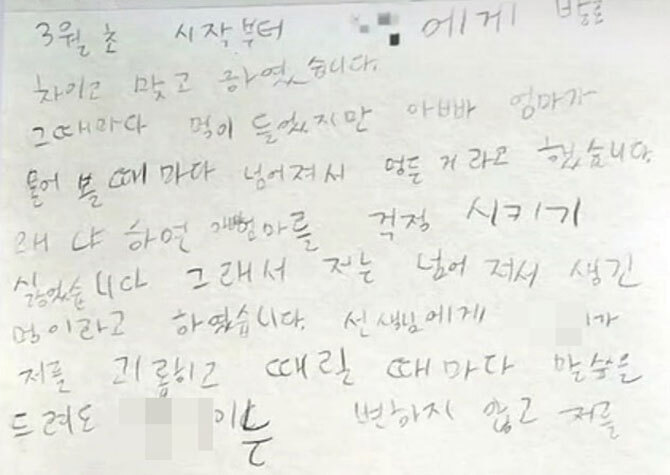 3월 초 시작부터 에게 발로
차이고 맞고 하였습니다.
그때마다 멍이 들었지만 아빠 엄마가
물어 볼 때 마다 넘어져서 멍든 거 라고 했습니다.
왜 냐 하면 엄마를 걱정 시키기
싫었습니다 그래서 저는 넘어 저서 생긴
멍이라고 하였습니다. 선생님에게 가
저를 괴롭히고 때릴 때마다 말씀을
드려도 이는 변하지 않고 저를